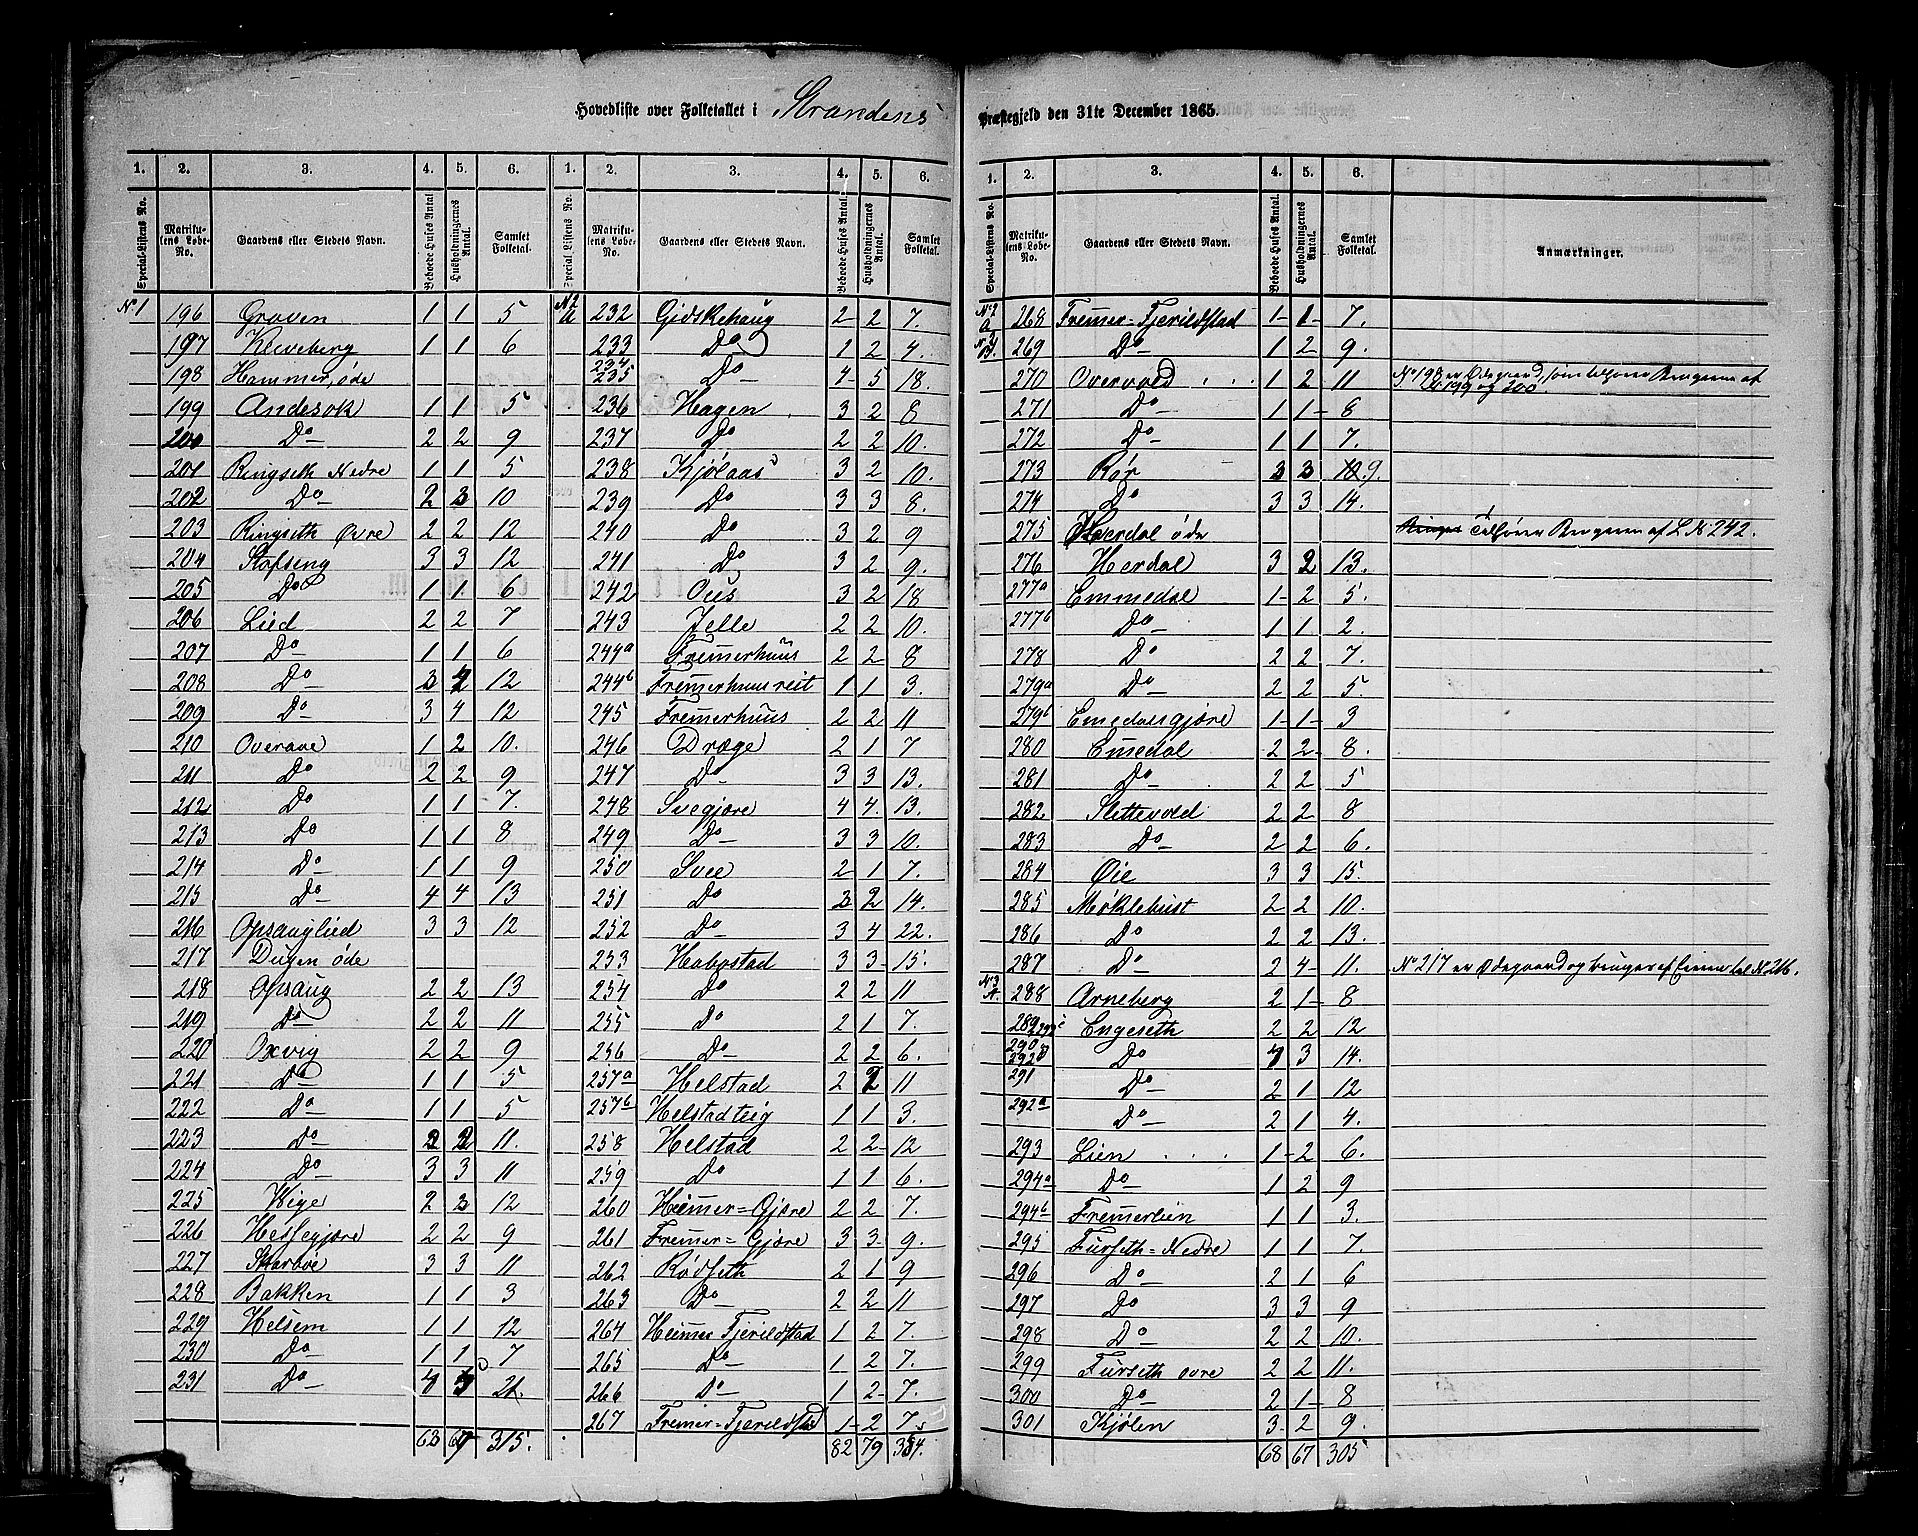 Hovedliste over Folketallet i Strandens
Præstegjeld den 31te December 1865.
1. 2. 3. 4. 5. 6. 1. 2. 3. 4. 5. 6.
Special-Listens No. Matrikulens Løbe-No. Gaardens eller Stedets Navn. Beboede Huses Antal Husholdningernes Antal. Samlet Folketal. Special Listens No. Matrikulens Løbe-No. Gaardens eller Stedets Navn. Beboede Huses Antal. Husholdningernes Antal. Samlet Folketal.
No 1 196 Groven 1 1 5
197 Kleveberg 1 1 6
198 Hammer, øde
199 Andesok 1 1 5
200 Do 2 2 9
201 Ringseth Nedre 1 1 5
202 Do 2 3 10
203 Ringseth Øvre 2 2 12
204 Stafseng 3 3 12
205 Do 1 1 6
206 Lied 2 2 7
207 Do 1 1 6
208 Do 3 4 12
209 Do 3 4 12
210 Overaae 1 2 10.
211 Do 2 2 9
212 Do 1 1 7.
213 Do 1 1 8
214 Do 1 1 9
215 Do 4 4 13
216 Opsauglied 3 3 12
217 Dugen øde
218 Opsaug 2 2 13
219 Do 2 2 11
220 Oxvig 2 2 9
221 Do 1 1 5
222 Do 1 1 5
223 Do 2 2 11.
224 Do 3 3 11
225 Vige 2 3 12
226 Hessegjære 2 2 9
227 Skarboe 3 3 11
228 Bakken 1 1 3
229 Helsem 1 1 12
230 Do 1 1 7
231 Do 21.
63 315.
No 2 A 232 Gidskehaug 2 2 7.
233 Do 1 2 4.
234 235 Do 4 5 18.
236 Hagen 3 2 8
237 Do 2 2 10.
238 Kjølaas 3 2 10.
239 Do 3 3 8.
240 Do 3 2 9
241 Do 3 2 9.
242 Ous 3 2 18
243 Jelle 2 2 10.
244a Fremerhuus 2 2 8
244b Fremerhuus reit 1 1 3.
245 Fremerhuus 2 2 11
246 Dræge 2 1 7
247 Do 3 3 13.
248 Svegjære 4 4. 13.
249 Do 3 3 10.
250 Svee 2 1 7.
251 Do 3 2 14.
252 Do 3 4 22.
253 Habostad 3 3 15.
254 Do 2 2 11
255 Do 2 1 7.
256 Do 2 2 6.
257a Helstad 2 2 11
257b Helstadteig 1 1 3.
258 Helstad 2 2 12
259 Do 1 1 6.
260 Heimer=Gjære 2 2 7.
261 Fremer=Gjære 3 3 9.
262 Rødseth 2 1 9
263 Do 2 2 11
264 Heimer Fjerildstad 1 2 7.
265 Do 1 2 7.
266 Do 1 2 7.
267 Fremer=Fjerildstad 1 2 7
82 79
1. 2. 3. 4. 5. 6.
Special-Listens No. Matrikulens Løbe-No. Gaardens eller Stedets Navn. Beboede Huses Antal. Husholdningernes Antal. Samlet Folketal. Anmærkninger.
No 2 A 268 Fremer=Fjerildstad 1 1 7.
No 2 B. 269 Do 1 2 9.
270 Overvold 1 2 11 No 198 er Ødegaard, som tilhører Brugerne af No 199 og 200.
271 Do 1 1 8
272 Do 1 1 7.
273 Rør 3 3 9.
274 Do 3 3 14.
275 Herdal øde Tilhører Brugeren af L.No 242.
276 Herdal 3 2 13.
277a Emmedal 1 2 5.
277b Do 1 1 2.
278 Do 2 2 7.
279a Do 2 2 5.
279b Emedalsgjære 1 1 3
280 Emedal 2 2 8.
281 Do 2 2 5
282. Slettevold 2 2 8
283 Do 2 2 6.
284 Øie 3 3 15.
285 Møklebust 2 2 10.
286 Do 2 2 13.
287 Do 2 4 11. No 217 er Ødegaard og bruges af Eieren til No 216.
No 3 A. 288 Arneberg 2 1 8
289 Engeseth 2 2 12
290 Do 3 14.
291 Do 2 1 12
292a Do 2 1 4.
293 Lien 1 2 6.
294a Do 1 2 9
294b Fremerlien 1 1 3.
295 Furseth=Nedre 1 1 7.
296 Do 2 1 6
297 Do 3 3 9
298 Do 2 2 10.
299 Furseth øvre 2 2 11.
300 Do 2 1 8
301 Kjølen 3 2 9.
68 67 305